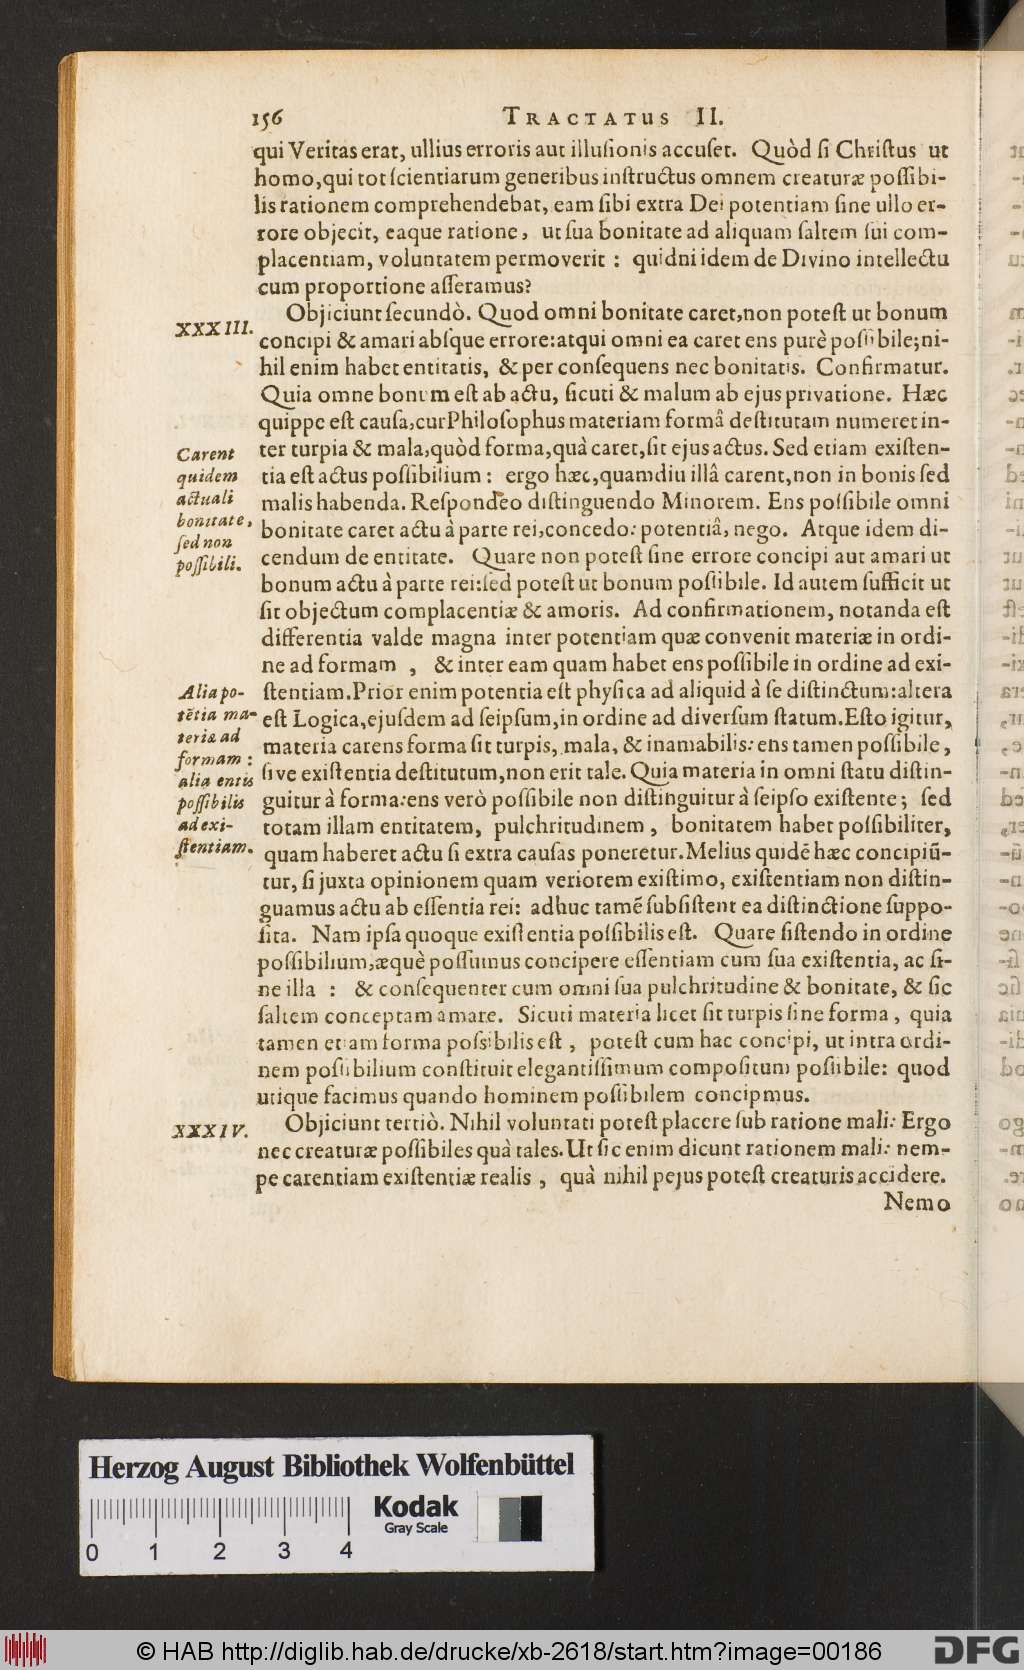 156 TRACTATUS II.
qui Veritas erat, ullius erroris aut illusionis accuset. Quòd si Christus ut
homo, qui tot scientiarum generibus instructus omnem creaturæ possibi-
lis rationem comprehendebat, eam sibi extra Dei potentiam sine ullo er-
rore objecit, eaque ratione, ut sua bonitate ad aliquam saltem sui com-
placentiam, voluntatem permoverit : quidni idem de Divino intellectu
cum proportione asseramus?
XXXIII.
Objiciunt secundò. Quod omni bonitate caret, non potest ut bonum
concipi & amari absque errore: atqui omni ea caret ens purè possibile; ni-
hil enim habet entitatis, & per consequens nec bonitatis. Confirmatur.
Quia omne bonum est ab actu, sicuti & malum ab ejus privatione. Hæc
quippe est causa, cur Philosophus materiam formâ destitutam numeret in-
ter turpia & mala, quòd forma, quà caret, sit ejus actus. Sed etiam existen-
tia est actus possibilium : ergo hæc, quamdiu illâ carent, non in bonis sed
malis habenda. Respondeo distinguendo Minorem. Ens possibile omni
bonitate caret actu à parte rei, concedo: potentiâ, nego. Atque idem di-
cendum de entitate. Quare non potest sine errore concipi aut amari ut
bonum actu à parte rei: sed potest ut bonum possibile. Id autem sufficit ut
sit objectum complacentiæ & amoris. Ad confirmationem, notanda est
differentia valde magna inter potentiam quæ convenit materiæ in ordi-
ne ad formam , & inter eam quam habet ens possibile in ordine ad exi-
stentiam. Prior enim potentia est physica ad aliquid à se distinctum: altera
est Logica, ejusdem ad seipsum, in ordine ad diversum statum. Esto igitur,
materia carens forma sit turpis, mala, & inamabilis: ens tamen possibile,
sive existentia destitutum, non erit tale. Quia materia in omni statu distin-
guitur à forma: ens verò possibile non distinguitur à seipso existente; sed
totam illam entitatem, pulchritudinem , bonitatem habet possibiliter,
quam haberet actu si extra causas poneretur. Melius quidē hæc concipiū-
tur, si juxta opinionem quam veriorem existimo, existentiam non distin-
guamus actu ab essentia rei: adhuc tamē subsistent ea distinctione suppo-
sita. Nam ipsa quoque existentia possibilis est. Quare sistendo in ordine
possibilium, æquè possumus concipere essentiam cum sua existentia, ac si-
ne illa : & consequenter cum omni sua pulchritudine & bonitate, & sic
saltem conceptam amare. Sicuti materia licet sit turpis sine forma , quia
tamen etiam forma possibilis est , potest cum hac concipi, ut intra ordi-
nem possibilium constituit elegantissimum compositum possibile: quod
utique facimus quando hominem possibilem concipmus.
Carent
quidem
actuali
bonitate,
sed non
possibili.
Alia po-
tētia ma-
teriæ ad
formam :
alia entis
possibilis
ad exi-
stentiam.
XXXIV.
Objiciunt tertiò. Nihil voluntati potest placere sub ratione mali: Ergo
nec creaturæ possibiles quà tales. Ut sic enim dicunt rationem mali: nem-
pe carentiam existentiæ realis , quà nihil pejus potest creaturis accidere.
Nemo
Herzog August Bibliothek Wolfenbüttel
Kodak
Gray Scale
0 1 2 3 4
© HAB http://diglib.hab.de/drucke/xb-2618/start.htm?image=00186
DFG